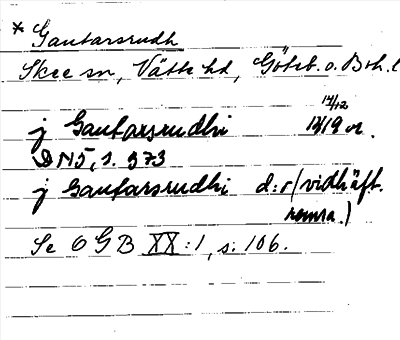 * Gautarsrudh
Skee sn, Vätte hd, Göteb. o. Boh. l
14/12
j Gautarsrudhi 1419 or.
DN 5, s. 373
j Gautarsrudhi d:r (vidhäft.
remsa)
Se OGB XX:1, s. 106.